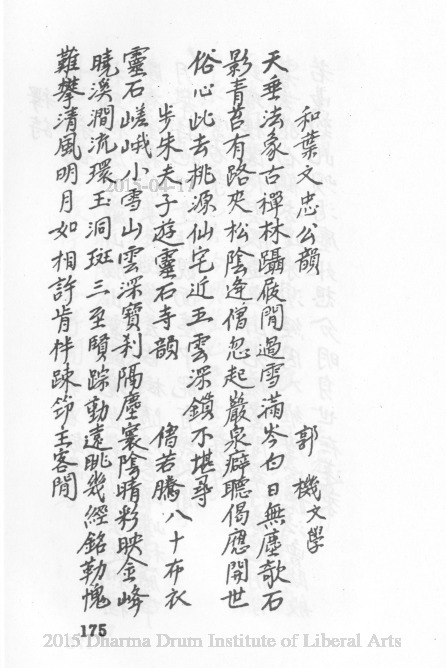 和葉文忠公韻　郭機文學
天垂法象古禪林躡屐閒過雪滿岑白日無塵欹石
影青苔有路夾松陰逢僧忽起巖泉癖聽偈應開世
俗心此去桃源仙宅近五雲深鎖不堪尋
步朱夫子遊靈石寺韻　若騰八十布衣
靈石嵯峨小雪山雲深寶刹隔塵寰陰晴彩映金峰
曉溪澗流環玉洞斑三至賢踪動遠眺幾經銘勒愧
難攀清風明月如相許肯伴踈筇客閒
175
2015-04-17
2015 Dharma Drum Institute of Liberal Arts